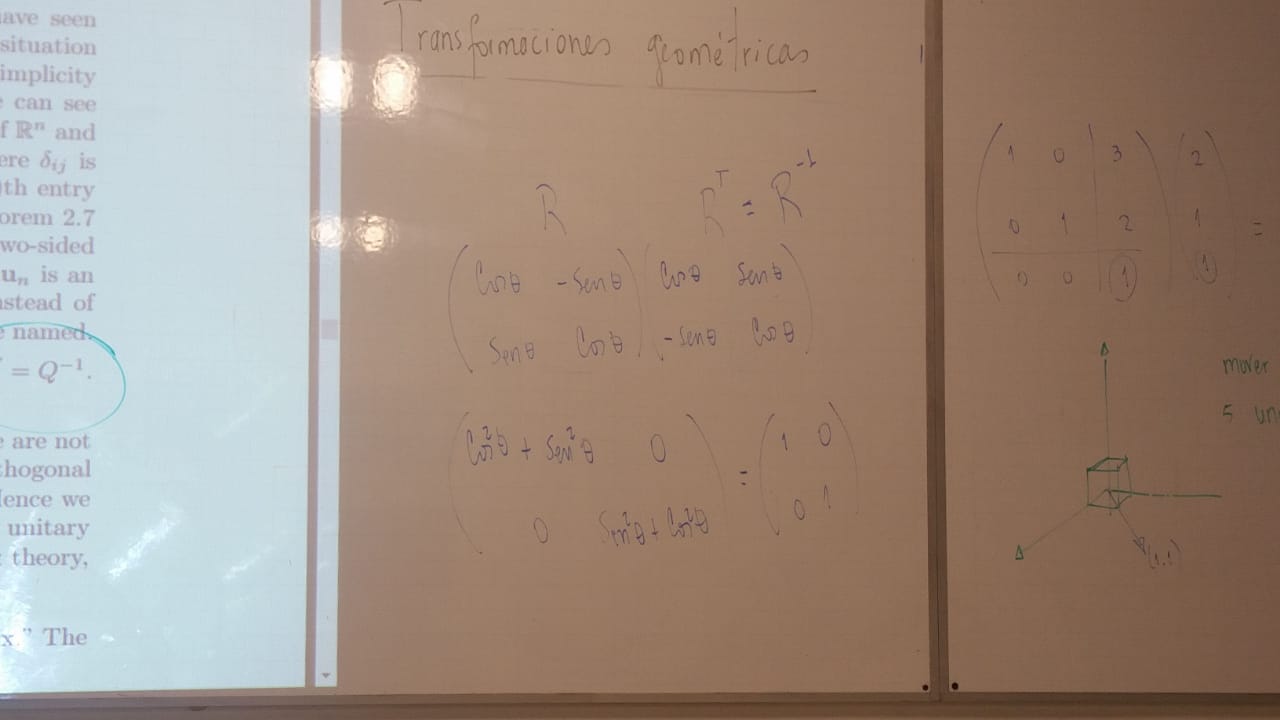 have seen
situation
implicity
e can see
f ℝⁿ and
ere δᵢⱼ is
th entry
orem 2.7
wo-sided
uₙ is an
nstead of
e named.
= Q⁻¹.
e are not
thogonal
Hence we
unitary
theory,
x." The
Transformaciones geométricas
R Rᵀ = R⁻¹
Cosθ -Senθ Cosθ Senθ
Senθ Cosθ -Senθ Cosθ
Cos²θ + Sen²θ 0 = 1 0
0 Sen²θ + Cos²θ 0 1
1 0 3 2
0 1 2 1 =
0 0 1 1
mover
5 un
(1,1)